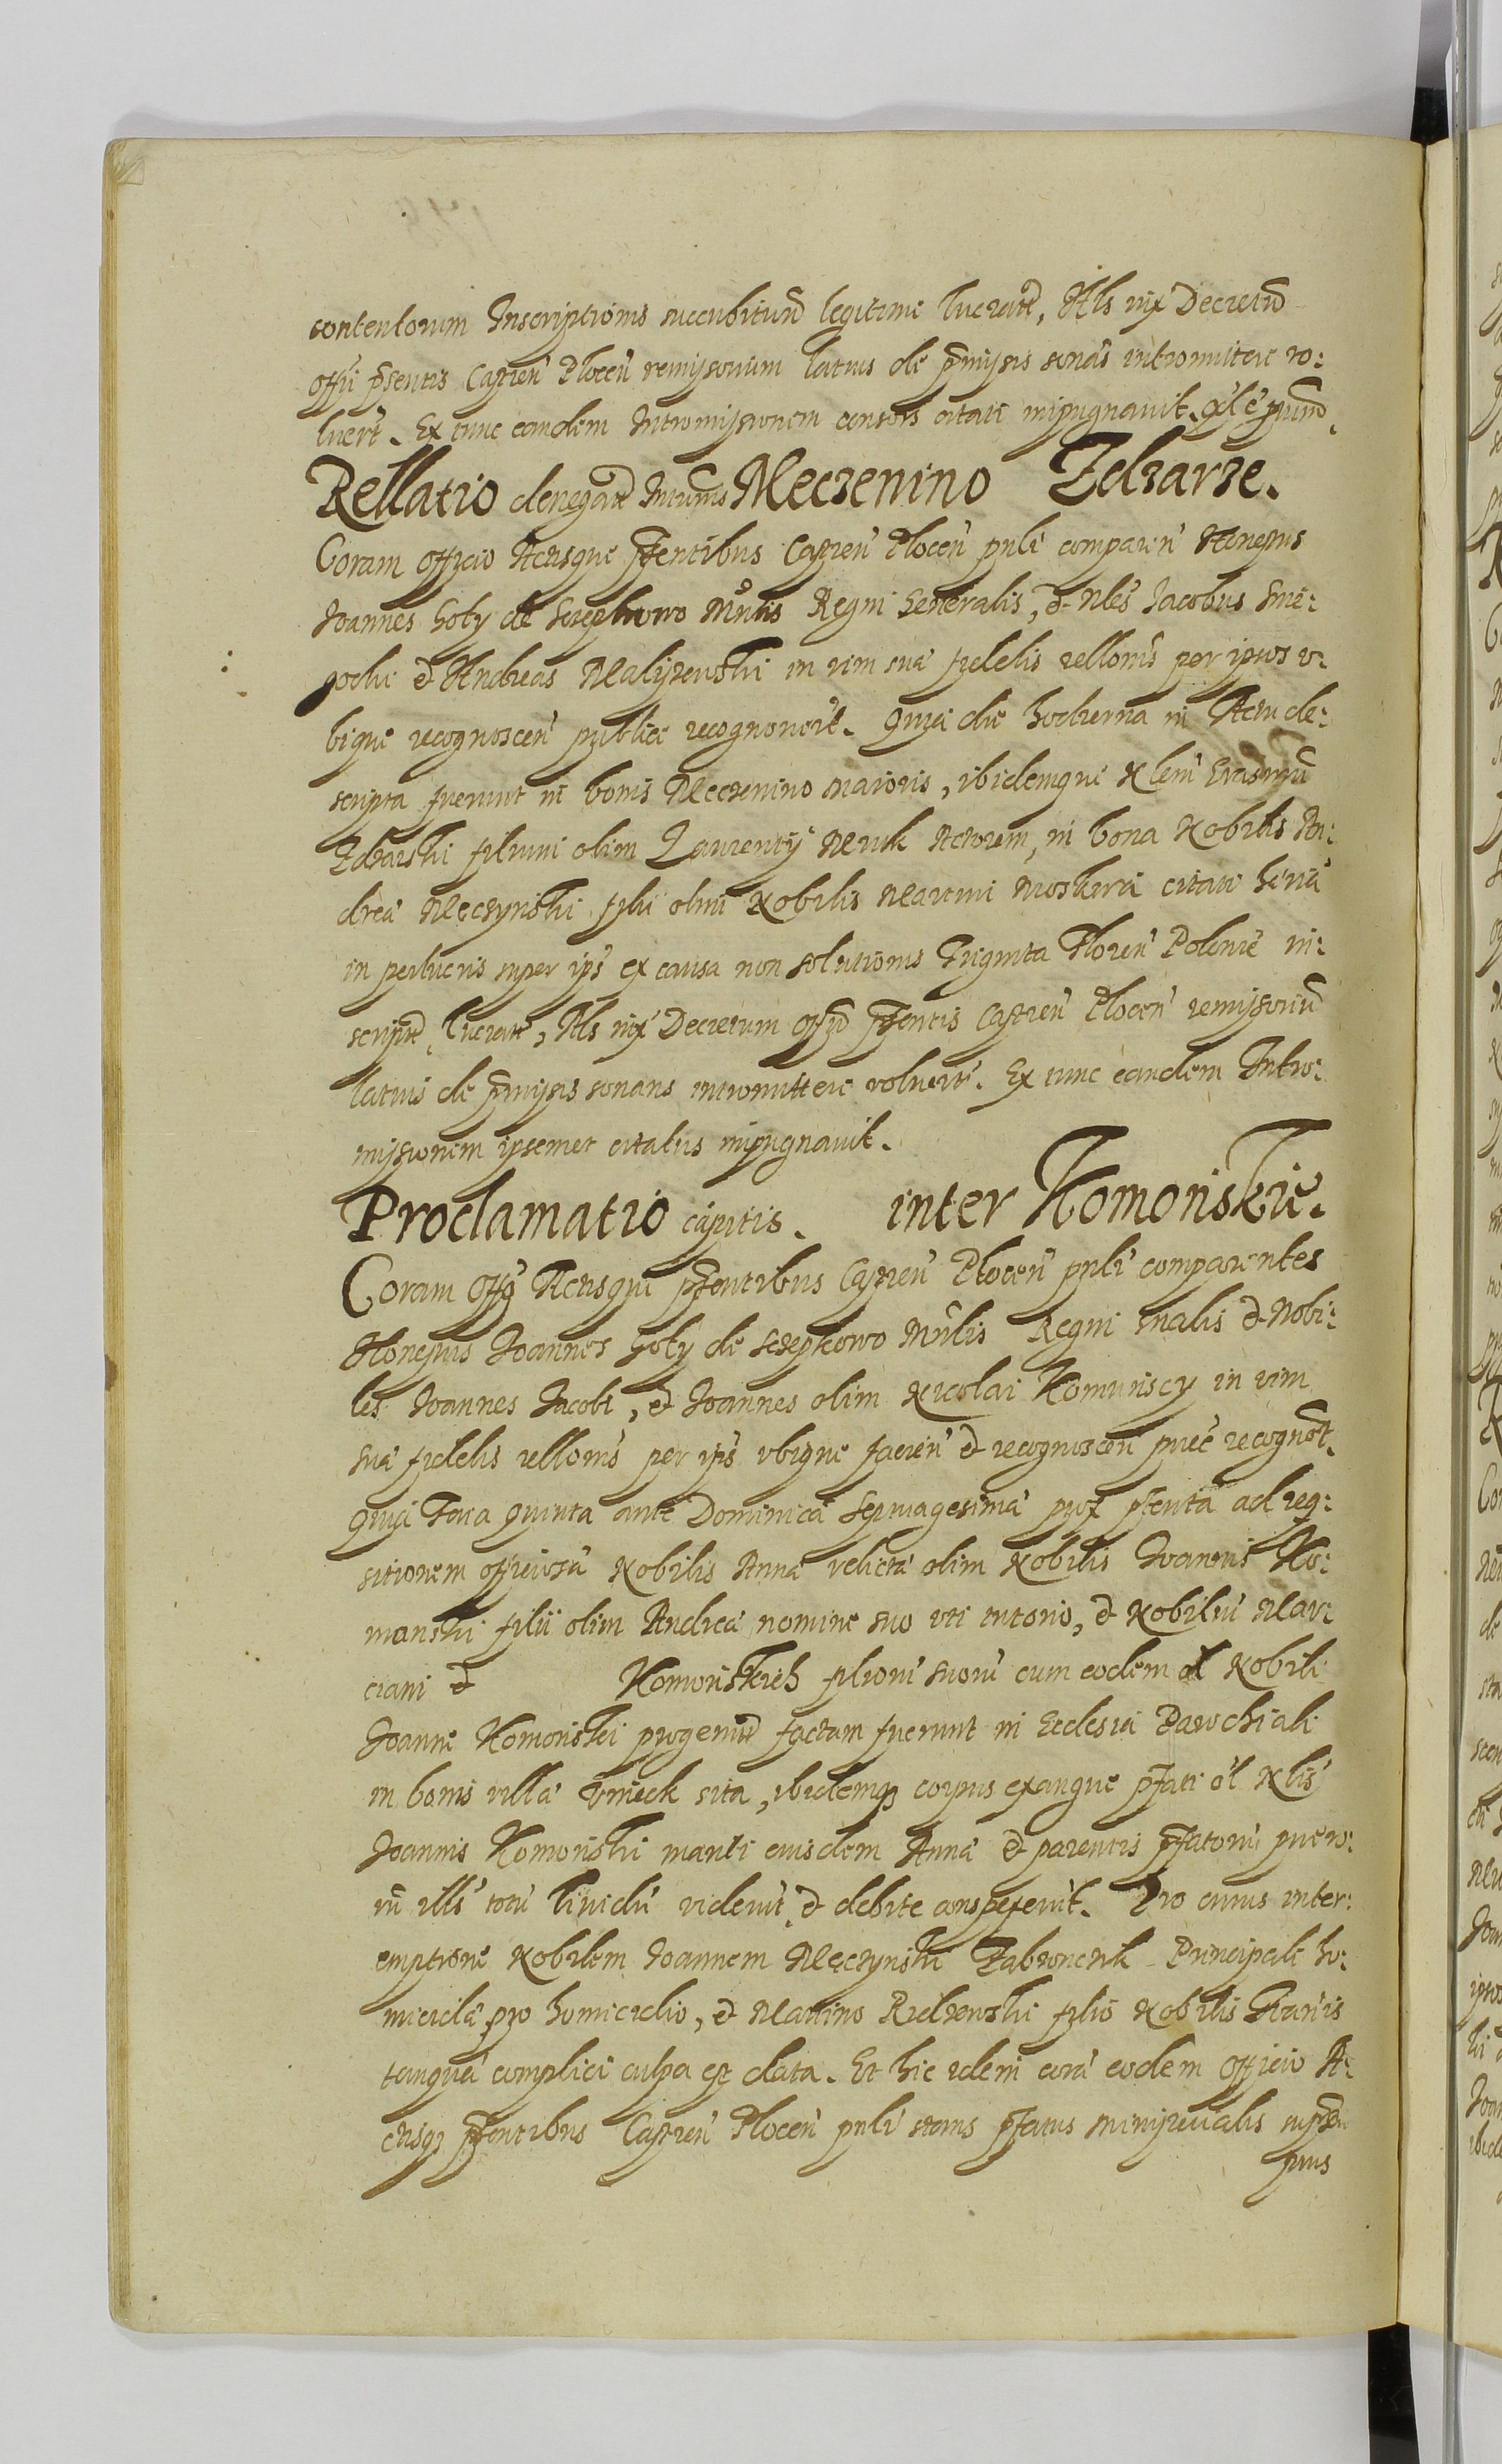 contentorum Inscriptionis succubitum̄ legitime lucrate, Als iux Decretū
offii p̄sentis Castren̄ Plocen̄ remissorium latius de p̄missis sonās intromittere vo:
luert. Ex tunc eandem Intromissionem consors citati impugnavit.
Rellatio denegate Intrōmis Meczenino Zdzarze.
Coram officio Actisque p̄sentibus Castren̄ Plocen̄ pnli comparen̄ Honestus
Joannes Goly de Szczepkowo Mnlis Regni Generalis, et Nles Jacobus Smie:
gocki et Andreas Maliszewski in vim sua fidelis rellonis per ipsos u:
bique recognoscen̄ publice recognoverūt. Quia die hodierna in Actu de:
scripta fuerunt in bonis Meczenino maioris, ibidemque Nlem Erasmū
Zdzarski filium olim Laurentij Mruk Actorem, in bona Nobilis An:
drea Meczynski filii olim Nobilis Martini Moskwa citati
in perlucris super ips ex causa non solutionis Triginta Floren̄ Polonie in:
script lucrate, Als iux Decretum offi p̄sentis Castren̄ Plocen̄ remissoriū
latius de p̄missis sonans intromittere voluert. Ex tunc eandem Intro:
missionem ipsemet citatus impugnavit.
Proclamatio capitis. inter Komonskie.
Coram Offo Actisque p̄sentibus Castren̄ Plocen̄ pnli comparentes
Honestus Joannes Goly de Szczepkowo Mnlis Regni Gnalis et Nobi:
les Joannes Jacobi, et Joannes olim Nicolai Komunscy in vim
sua fidelis rellonis per ips ubique facien̄ et recognoscen̄ puce recognōt.
Quia Feria quinta ante Dominica Septuagesima prox p̄terita ad req:
sitionem officiosā Nobilis Anna relicta olim Nobilis Joannis Ko:
manski filii olim Andrea nomine suo uti tutorio, et Nobiliū Mar:
ciani et Komonskich filiorū suorū cum eodem ol Nobili
Joanne Komonski progenite factam fuerunt in Ecclesia Parochiali
in bonis villa Unieck sita, ibidemq3 corpus exangue p̄fati ol Nlis
Joannis Komonski mariti eiusdem Anna et parentis p̄fatorū puero:
rū ills totū lividū viderūt, et debite conspexerūt. Pro cuius inter:
emptione Nobilem Joannem Męczynski Zabronczik Principale ho:
micida pro homicidio, et Martino Rudzewski filio Nobilis Stanis
tanquā complici culpa est data. Et hic idem corā eodem officio A:
ctisq3 p̄sentibus Castren̄ Plocen̄ pnli stans p̄fatus ministerialis